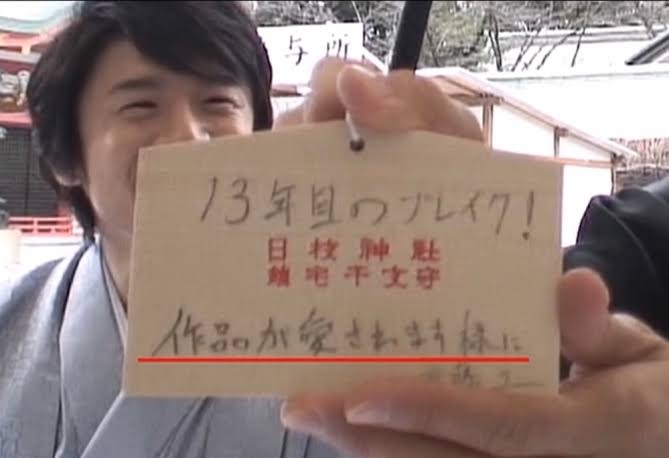 与所
13年目のブレイク!
日枝神社
鎮宅干支守
作品が愛されます様に